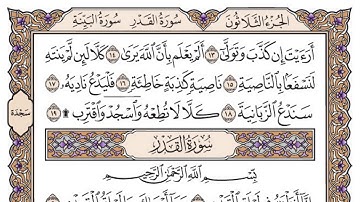 الجزء الثلاثون سورة القدر سورة البينة
أَرَءَيْتَ إِن كَذَّبَ وَتَوَلَّىٰٓ ١٣ أَلَمْ يَعْلَم بِأَنَّ ٱللَّهَ يَرَىٰ ١٤ كَلَّا لَئِن لَّمْ يَنتَهِ
لَنَسْفَعًۢا بِٱلنَّاصِيَةِ ١٥ نَاصِيَةٍ كَٰذِبَةٍ خَاطِئَةٍ ١٦ فَلْيَدْعُ نَادِيَهُۥ ١٧
سَنَدْعُ ٱلزَّبَانِيَةَ ١٨ كَلَّا لَا تُطِعْهُ وَٱسْجُدْ وَٱقْتَرِب ۩ ١٩
سجدة
سورة القدر
بِسْمِ ٱللَّهِ ٱلرَّحْمَٰنِ ٱلرَّحِيمِ